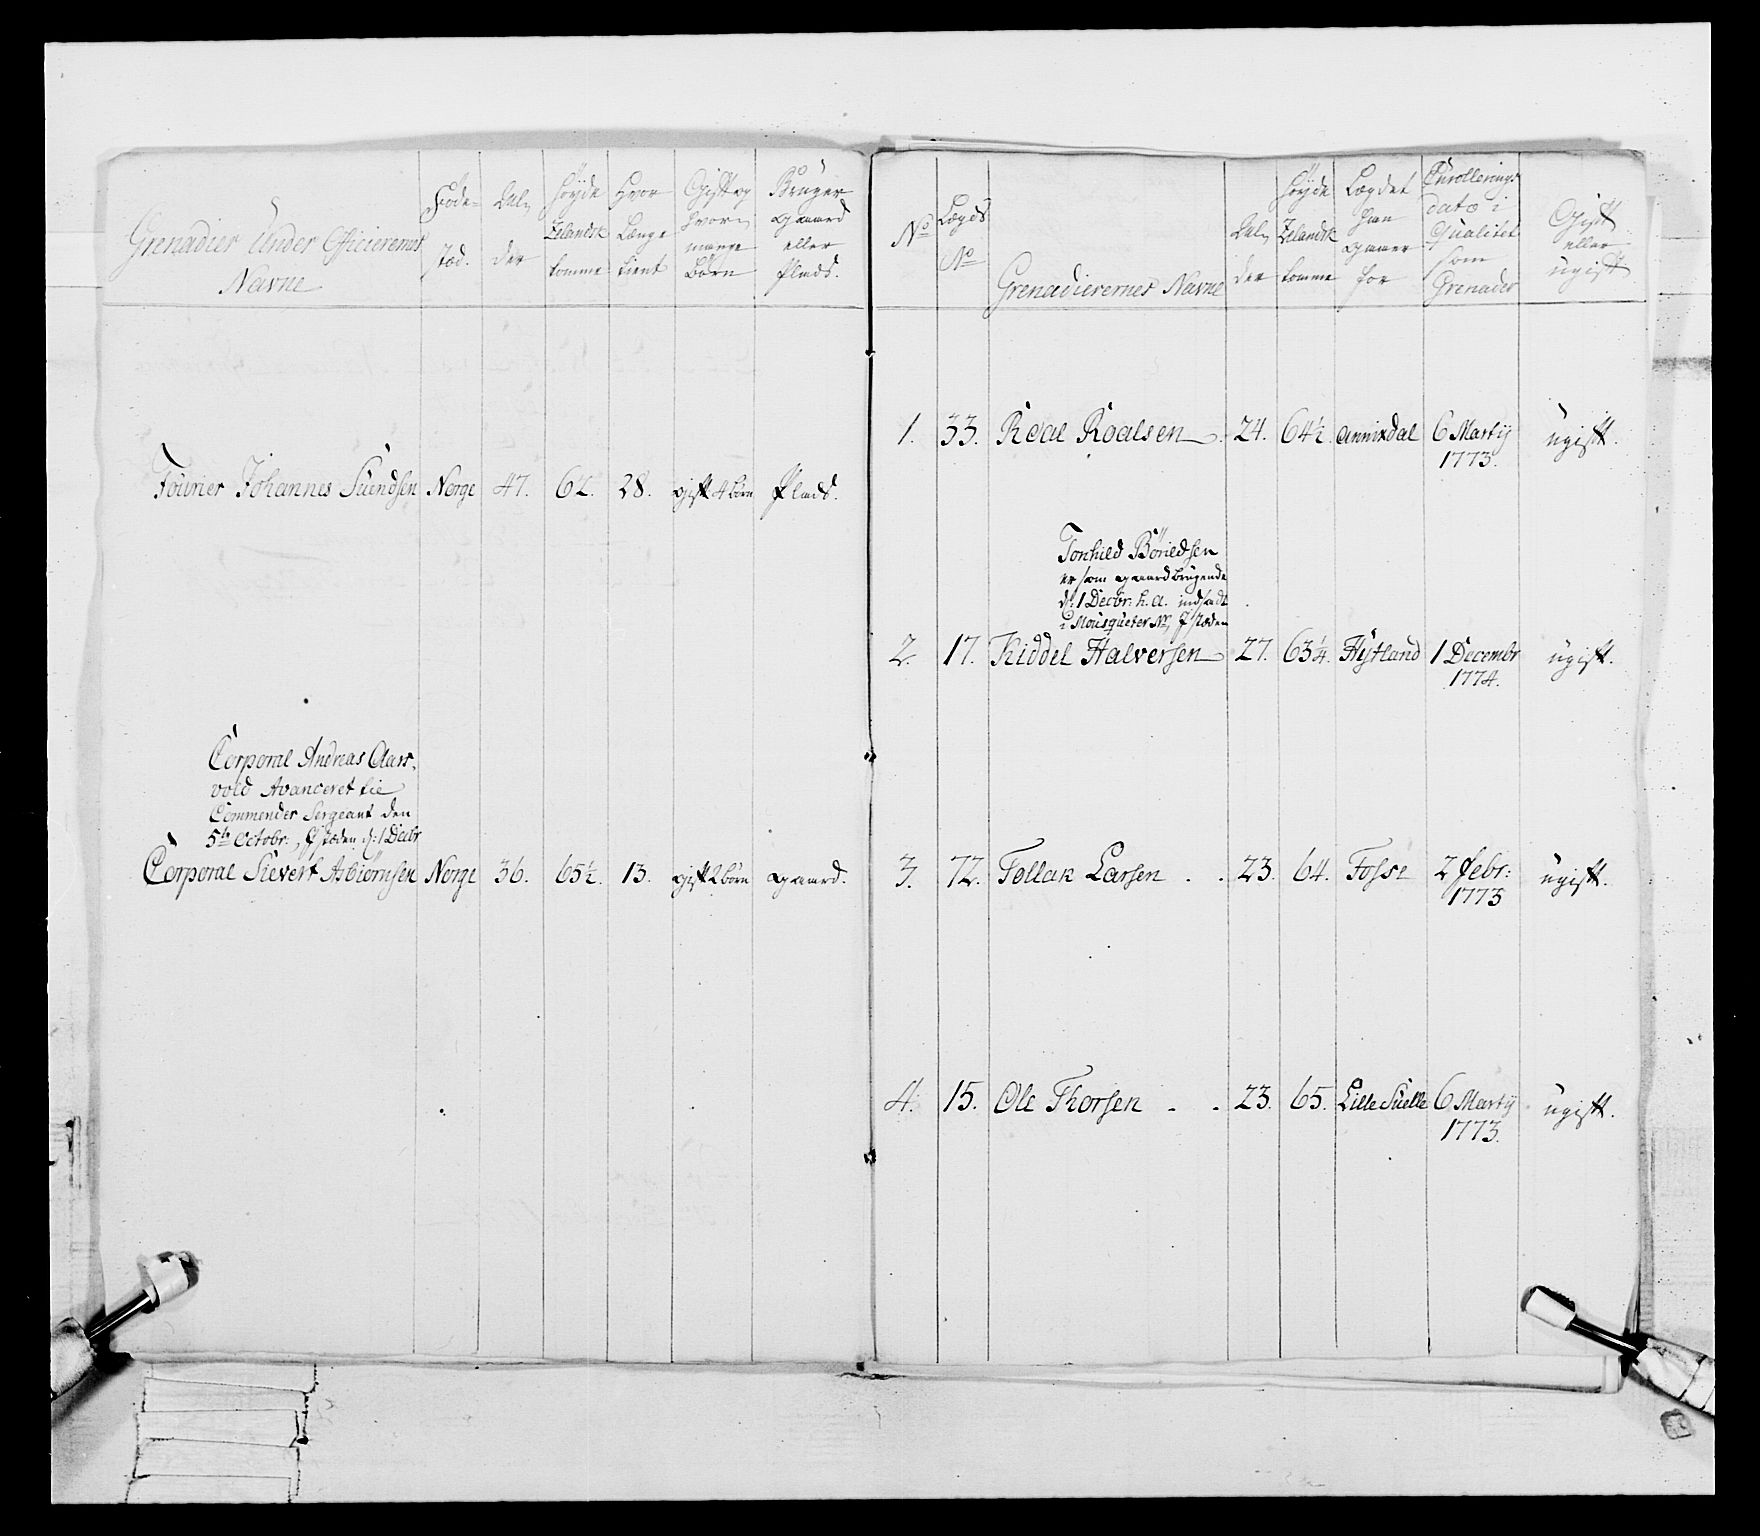 Grenadier Under Officierernes
Navne
Føde-
stæd.
Al-
der
Høyde
Zelandsk
tomme
Hvor
Længe
tient
Gift og
hvor
mange
Børn
Bruger
gaard
eller
Plads.
Fourier Johannes Suendsen Norge 47. 62. 28. gift 4 børn Plads.
Corporal Andreas Aars-
vold Avanceret til
Commender Sergeant den
5te Octobr:, I stæden d: 1 Decbr
Corporal Sievert Asbiørnsen Norge 36. 65½. 13. gift 2 børn gaard.
No
Lægds
No
Grenadierernes Navne
Al-
der
Høyde
Zelandsk
tomme
Lægdet
han
gaaer
for
Enrollerings
dato i
Qualitet
som
Grenader
Gift
eller
ugift
1. 33. Roal Roalsen 24. 64½. Annixdal 6 Martij
1773. ugift.
Tonhild Børildsen
er som gaardbrugende
d: 1 Decbr: h. a. indsadt
i Mousqueter No, I stæden
2. 17. Kiddel Halversen 27. 63¼. Hÿtland 1 Decembr
1774. ugift.
3. 72. Follak Larsen 23. 64. Fosse 2 Febr:
1773 ugift.
4. 15. Ole Thorsen 23. 65. Lille Suelle 6 Martij
1773. ugift.